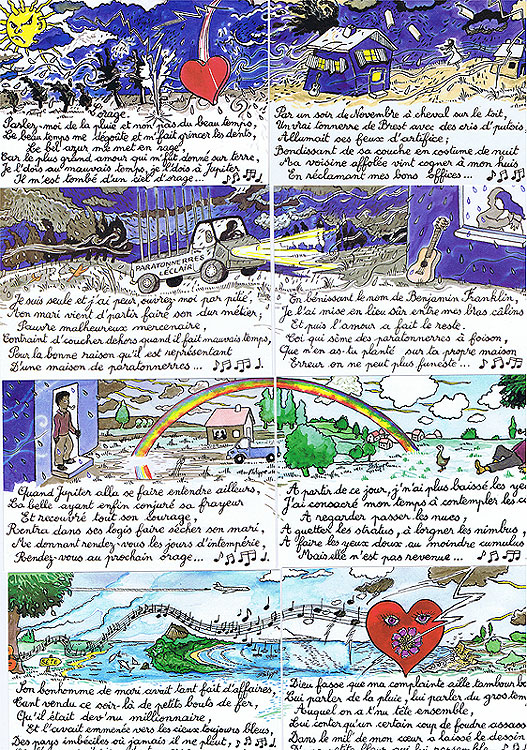 l'orage.
Parlez-moi de la pluie et non pas du beau temps,
Le beau temps me dégoûte et m'fait grincer les dents,
Le bel azur me met en rage,
Car le plus grand amour qui m'fut donné sur terre,
Je l'dois au mauvais temps, je l'dois à Jupiter
Il m'est tombé d'un ciel d'orage...
Par un soir de Novembre à cheval sur le toit,
Un vrai tonnerre de Brest avec des cris d'putois
Allumait ses feux d'artifice;
Bondissant de sa couche en costume de nuit
Ma voisine affolée vint cogner à mon huis
En réclamant mes bons offices...
PARATONNERRES
LECLAIR
Je suis seule et j'ai peur, ouvrez-moi par pitié,
Mon mari vient d'partir faire son dur métier,
Pauvre malheureux mercenaire,
Contraint d'coucher dehors quand il fait mauvais temps,
Pour la bonne raison qu'il est représentant
D'une maison de paratonnerres...
En bénissant le nom de Benjamin Franklin,
Je l'ai mise en lieu sûr entre mes bras câlins
Et puis l'amour a fait le reste.
Toi qui sèmes des paratonnerres à foison,
Que n'en as-tu planté sur ta propre maison
Erreur on ne peut plus funeste...
Quand Jupiter alla se faire entendre ailleurs,
La belle ayant enfin conjuré sa frayeur
Et recouvré tout son courage,
Rentra dans ses logis faire sécher son mari,
Me donnant rendez-vous les jours d'intempérie,
Rendez-vous au prochain orage...
A partir de ce jour, j'n'ai plus baissé les ye
J'ai consacré mon temps à contempler les c
A regarder passer les nues,
A guetter les stratus, à lorgner les nimbus,
A faire les yeux doux au moindre cumulus
Mais elle n'est pas revenue...
SETE
Son bonhomme de mari avait tant fait d'affaires,
Tant vendu ce soir-là de petits bouts de fer,
Qu'il était dev'nu millionnaire,
Et l'avait emmenée vers les cieux toujours bleus,
Des pays imbéciles où jamais il ne pleut,
Dieu fasse que ma complainte aille, tambour ba
Lui parler de la pluie, lui parler du gros tem
Auquel on a t'nu tête ensemble,
Lui conter qu'un certain coup de foudre assass
Dans le mil de mon cœur a laissé le dessin